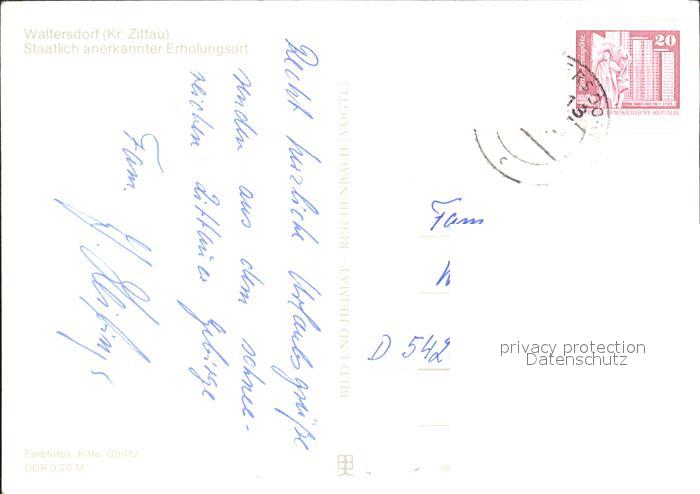 Waltersdorf (Kr. Zittau)
Staatlich anerkannter Erholungsort
Recht herzliche Urlaubsgrüße
senden aus dem schnee-
reichen Zittauer Gebirge
Fam.
BILD UND HEIMAT · REICHENBACH (VOGTL)
20
DEMOKRATISCHE REPUBLIK
Fam
D 542
privacy protection
Datenschutz
Farbfotos: Kitte, Görlitz
DDR 0,20 M